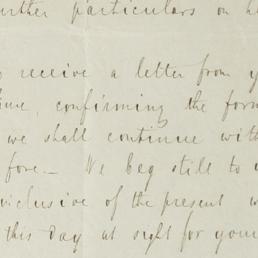 further particulars on
receive a letter from
confirming the
we shall continue with
fore. We beg still to
inclusive of the present
this day at sight for your